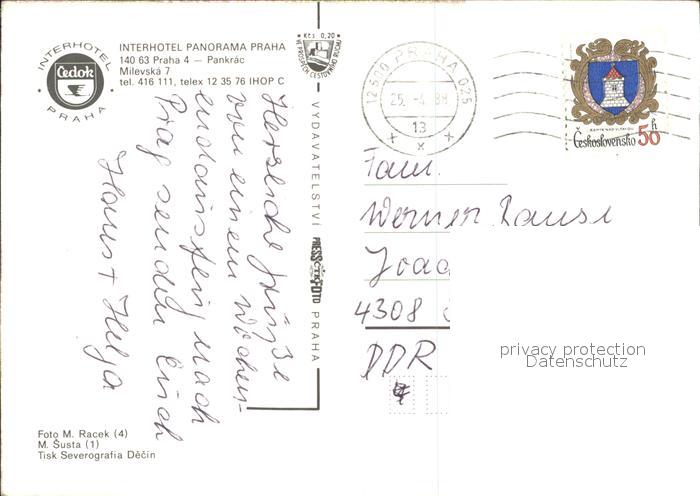 INTERHOTEL
Čedok
PRAHA
INTERHOTEL PANORAMA PRAHA
140 63 Praha 4 — Pankrác
Milevská 7
tel. 416 111, telex 12 35 76 IHOP C
Kčs 0,20
VE PROSPĚCH CESTOVNÍHO RUCHU
125 00 PRAHA 025
25. -4. 88
13
Československo 50 h
VYDAVATELSTVÍ PRESSFOTO PRAHA
Herzliche Grüße
von einem Wochen-
endausflug nach
Prag senden Euch
Hans + Helga
Fam.
Werner
4308
DDR
privacy protection
Datenschutz
Foto M. Racek (4)
M. Šusta (1)
Tisk Severografia Děčín